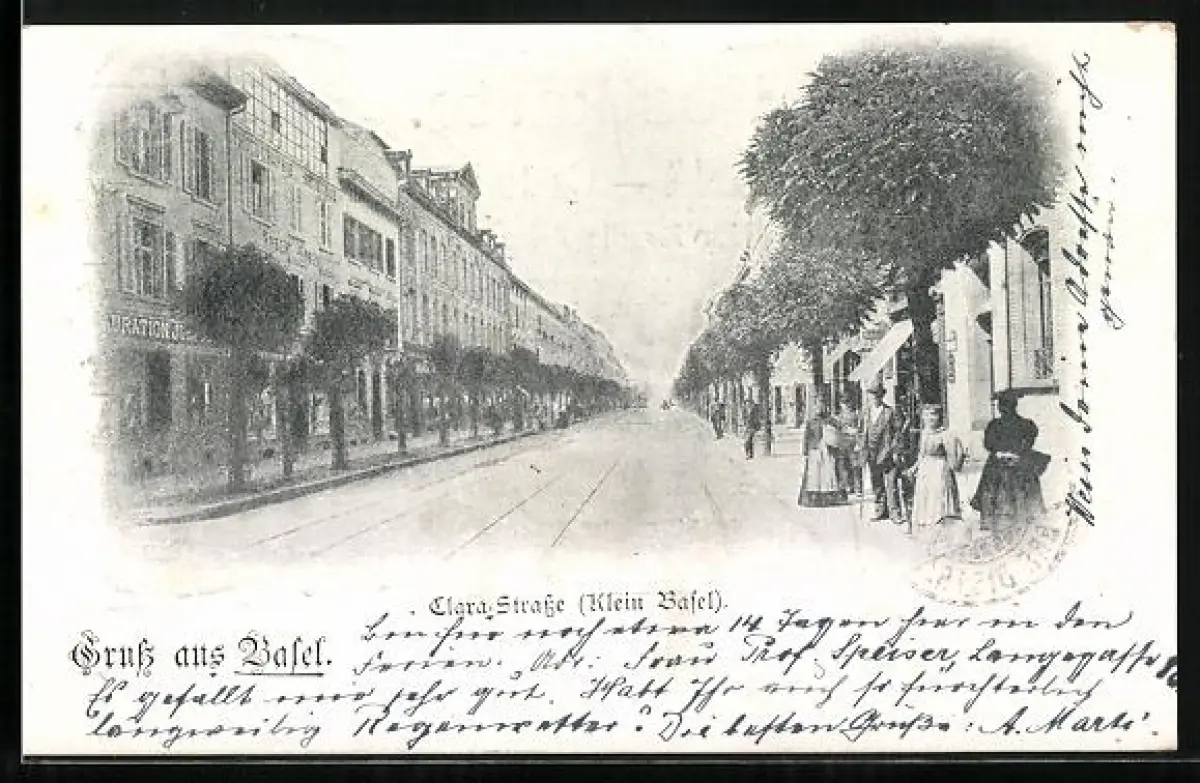 Clara-Straße (Klein Basel).
Gruß aus Basel.
Bin für noch etwa 14 Tagen hier in den
Ferien. Adr: Frau Prof. Speiser, Langegasse
Es gefällt mir sehr gut. Habt Ihr auch so fürchterlich
langweilig Regenwetter? Die besten Grüße: A. Marti.
Adresse nicht